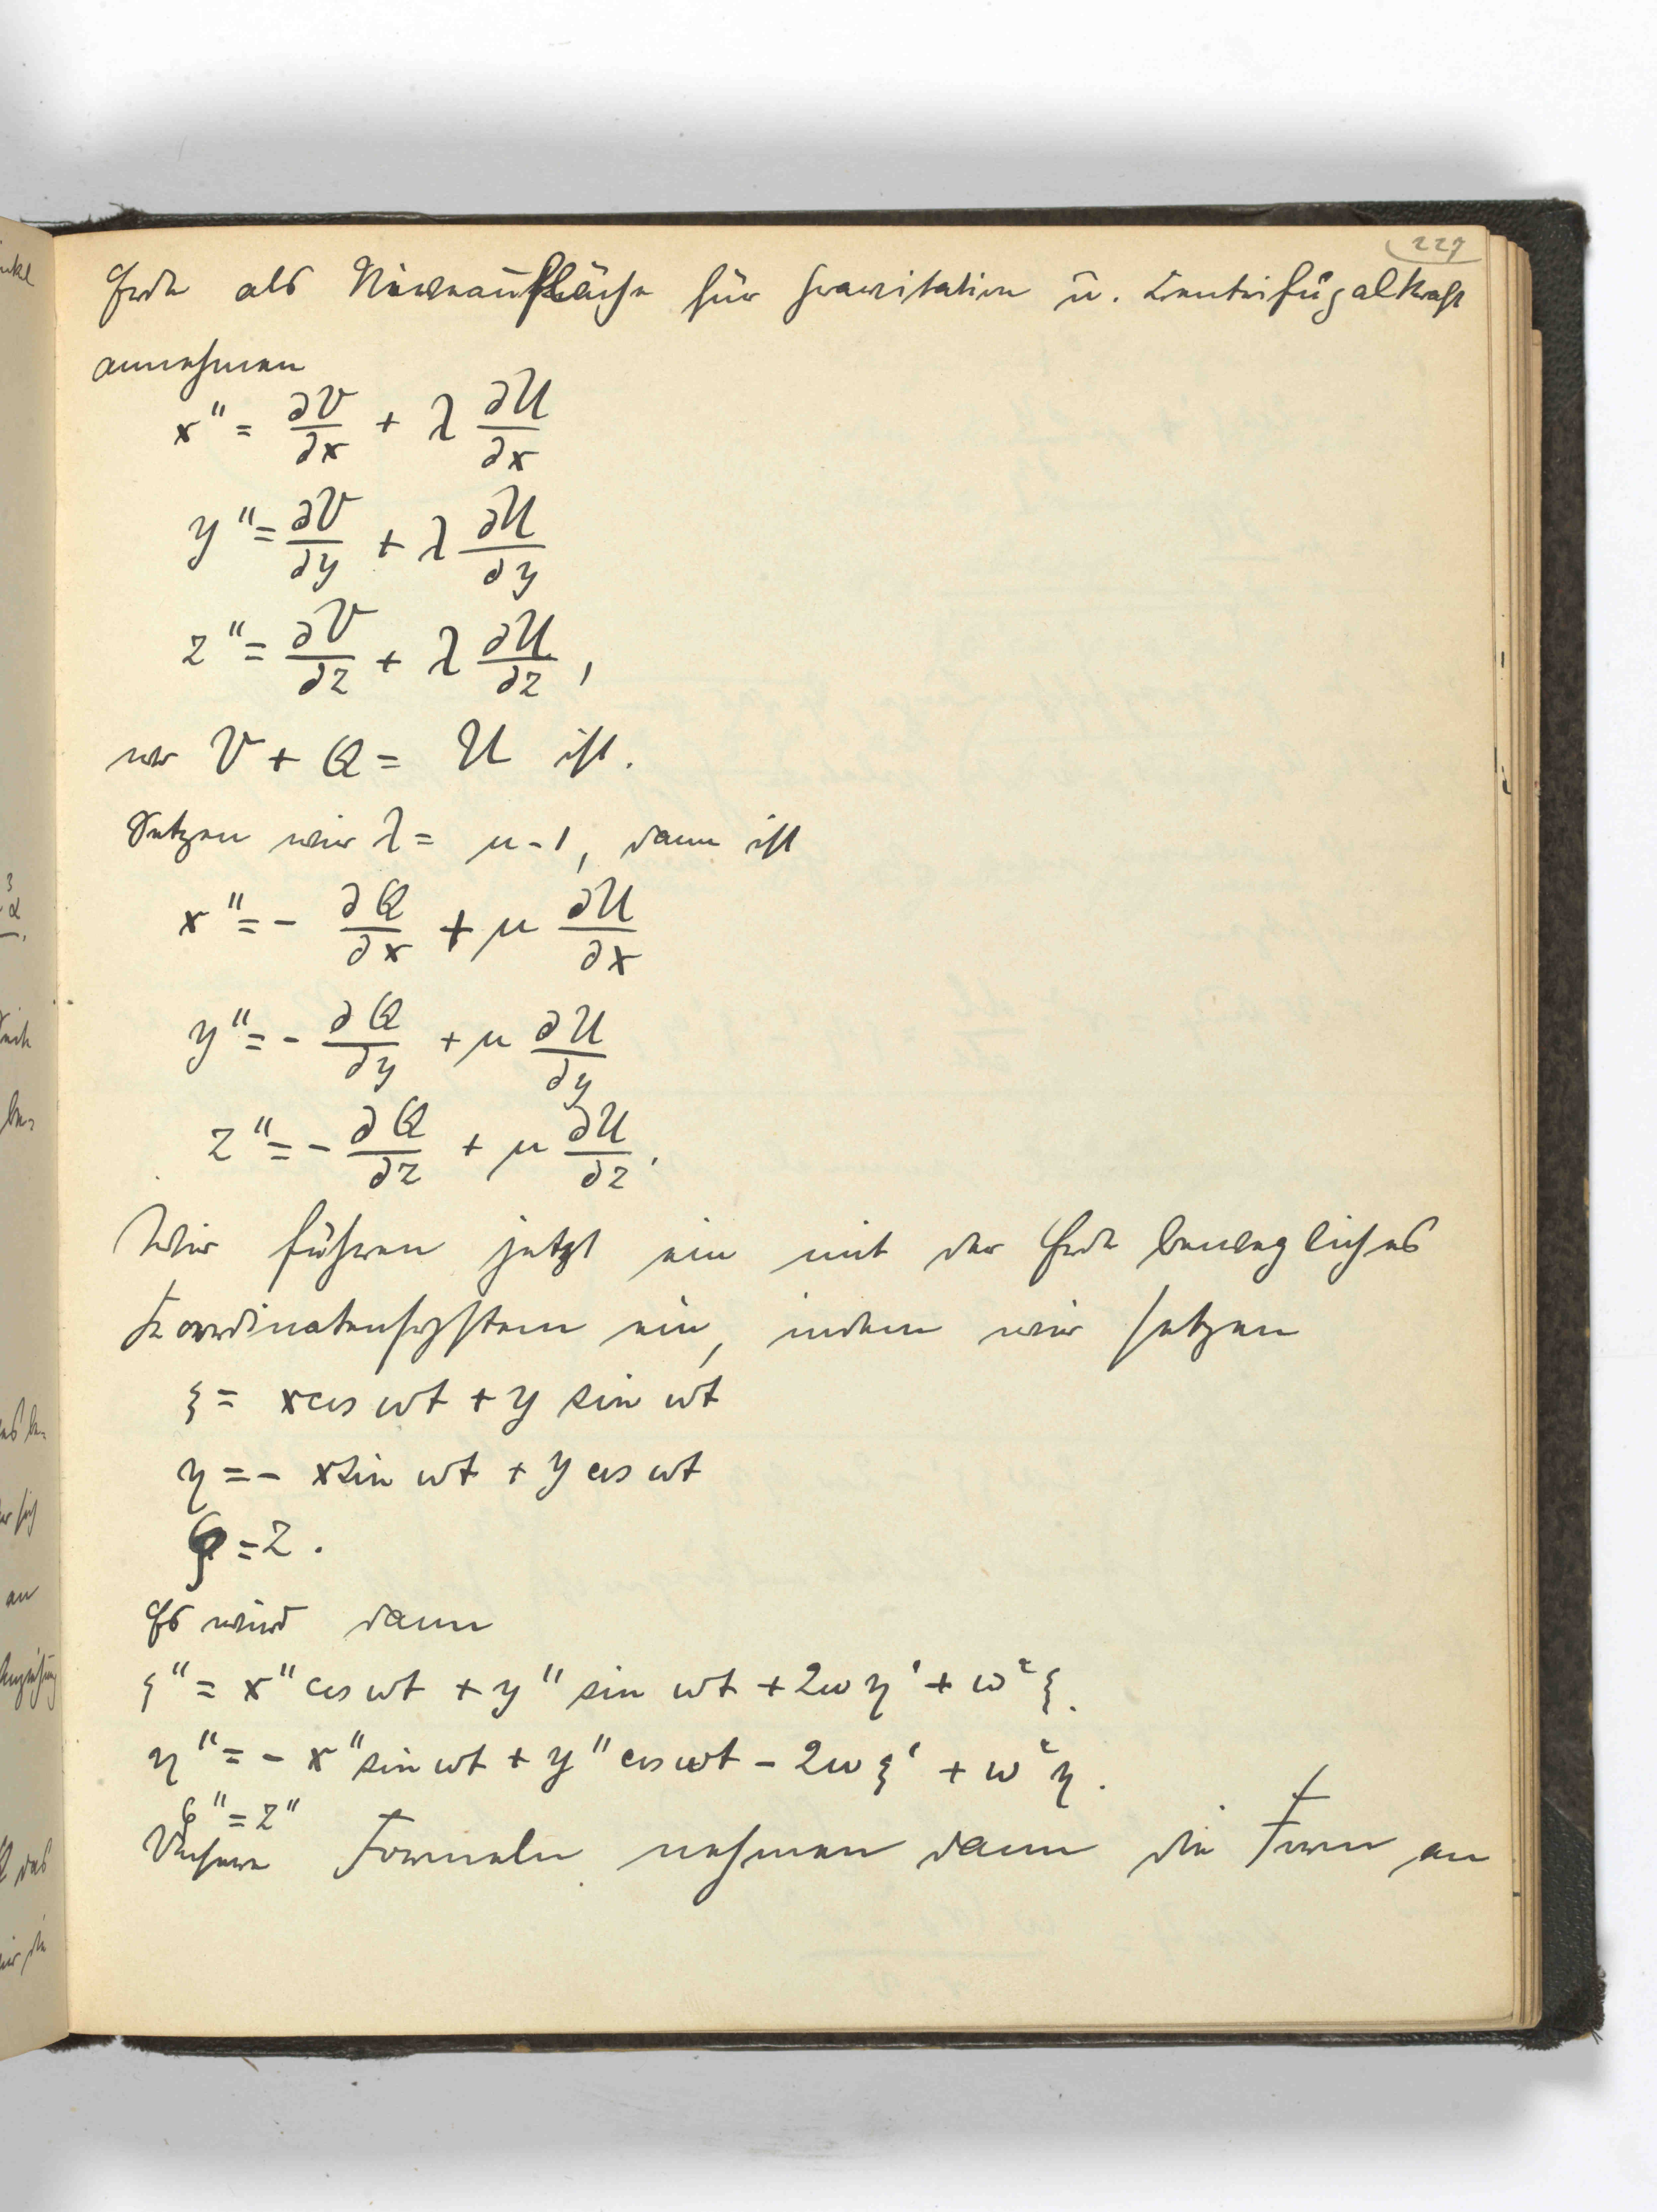 229
Erde als Niveaufläche für Gravitation u. Zentrifugalkraft
annehmen
x'' = ∂V/∂x + λ ∂U/∂x
y'' = ∂V/∂y + λ ∂U/∂y
z'' = ∂V/∂z + λ ∂U/∂z ,
wo V + Q = U ist.
Setzen wir λ = μ-1, dann ist
x'' = - ∂Q/∂x + μ ∂U/∂x
y'' = - ∂Q/∂y + μ ∂U/∂y
z'' = - ∂Q/∂z + μ ∂U/∂z .
Wir führen jetzt ein mit der Erde bewegliches
Koordinatensystem ein, indem wir setzen
ξ = x cos ωt + y sin ωt
η = - x sin ωt + y cos ωt
ζ = z .
Es wird dann
ξ'' = x'' cos ωt + y'' sin ωt + 2ω η' + ω² ξ.
η'' = - x'' sin ωt + y'' cos ωt - 2ω ξ' + ω² η .
ζ'' = z''
Unsere Formeln nehmen dann die Form an